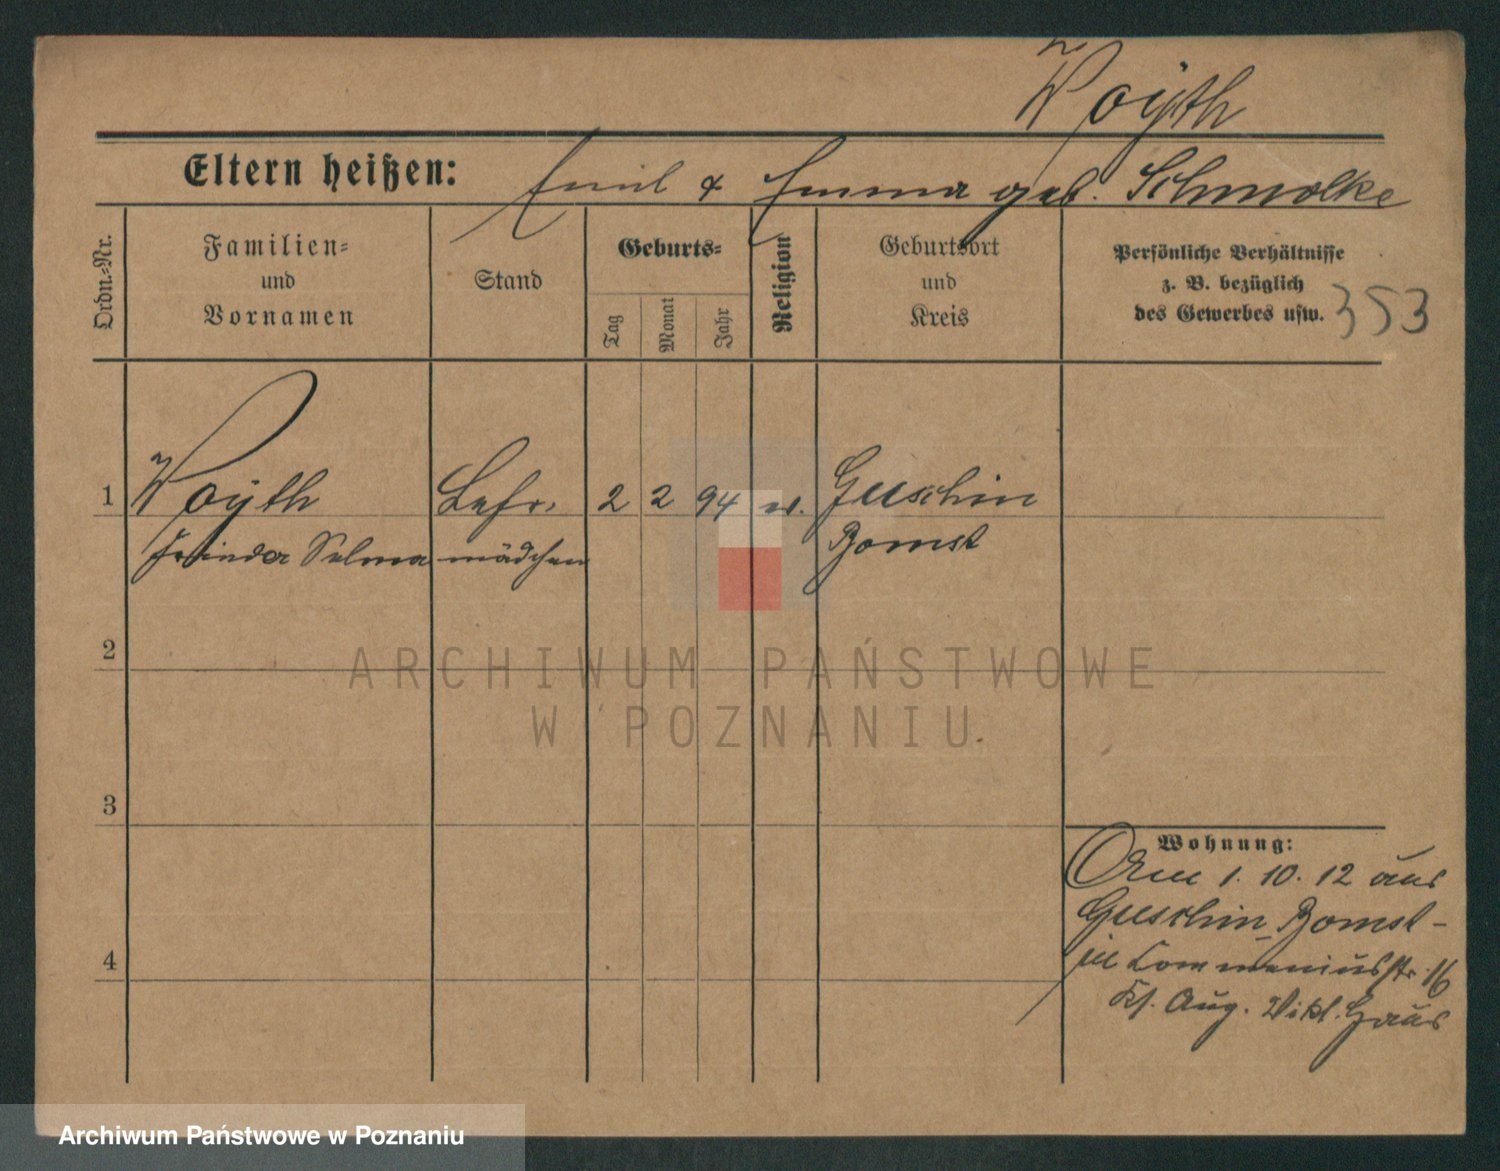 Woÿth
Eltern heißen: Emil & Emma geb. Schmolke
Ordn.-Nr.
Familien-
und
Vornamen
Stand
Geburts-
Tag
Monat
Jahr
Religion
Geburtsort
und
Kreis
Persönliche Verhältnisse
z. B. bezüglich
des Gewerbes usw.
353
1 Woÿth Lehr- 2 2 94 ev. Guschin
Selma mädchen Bomst
2
3
4
Wohnung:
Am 1. 10. 12 aus
Guschin, Bomst -
in Commeniusstr. 16
Ks. Aug. Vikt. Haus
ARCHIWUM PAŃSTWOWE
W POZNANIU
Archiwum Państwowe w Poznaniu